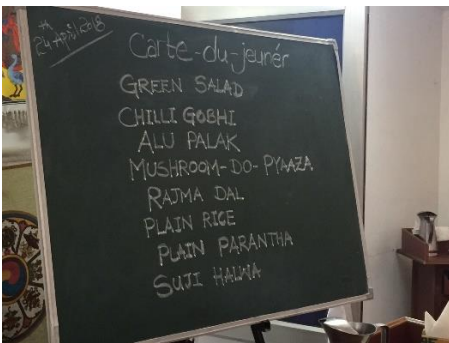 24th Apr, 2018
Carte-du-jeunér
GREEN SALAD
CHILLI GOBHI
ALU PALAK
MUSHROOM-DO-PYAAZA
RAJMA DAL
PLAIN RICE
PLAIN PARANTHA
SUJI HALWA